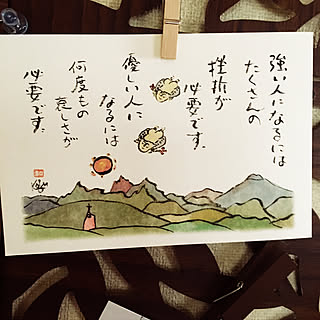 強い人になるには
たくさんの
挫折が
必要です。
優しい人に
なるには
何度もの
哀しさが
必要です。